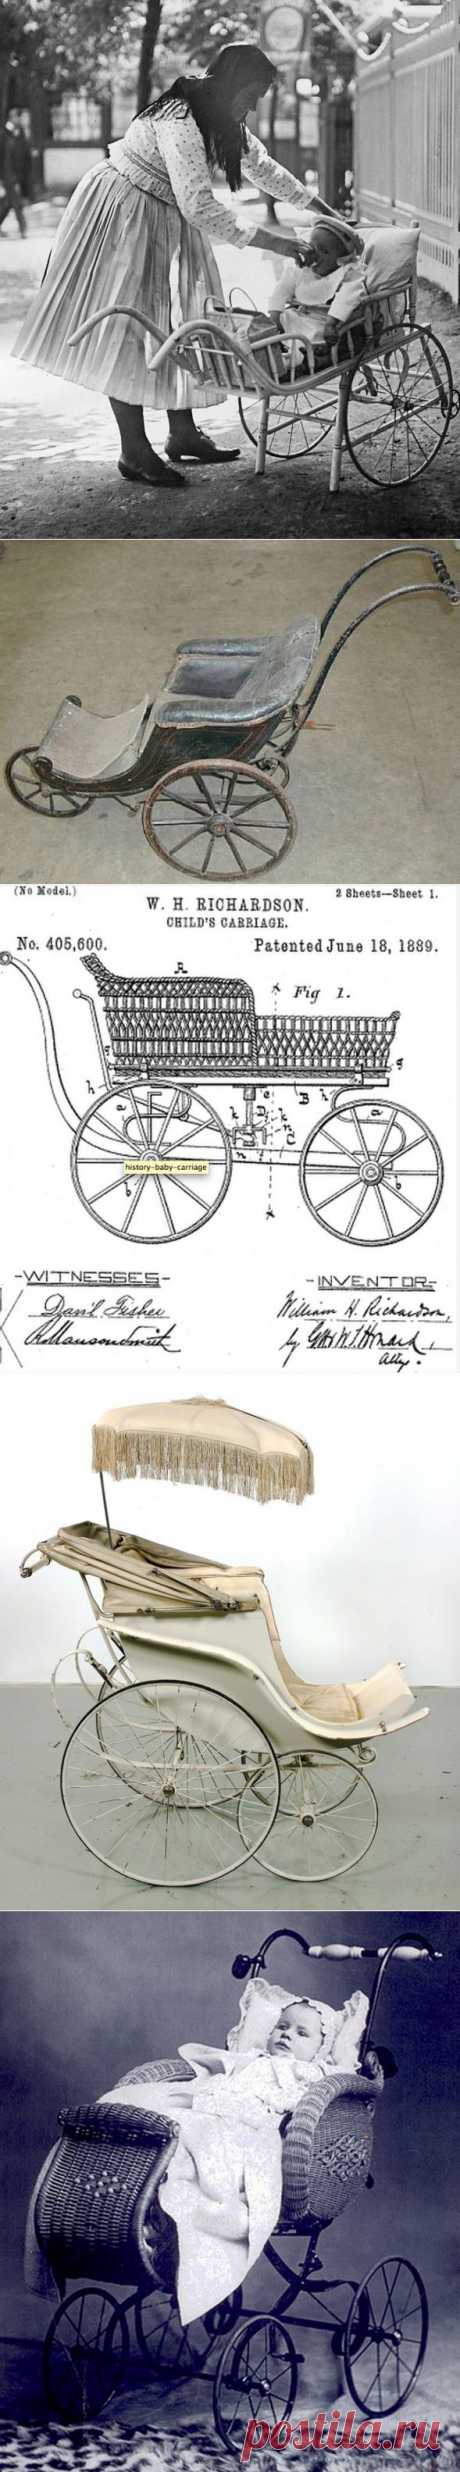 (No Model.)
2 Sheets—Sheet 1.
W. H. RICHARDSON.
CHILD'S CARRIAGE.
No. 405,600.
Patented June 18, 1889.
Fig 1.
A
g
g
h
h
B
a
a
e
k
k
D
n
C
n
f
b
b
x
x
history-baby-carriage
-WITNESSES-
-INVENTOR-
Danl Fisher
William H. Richardson,
by
Atty.
postila.ru